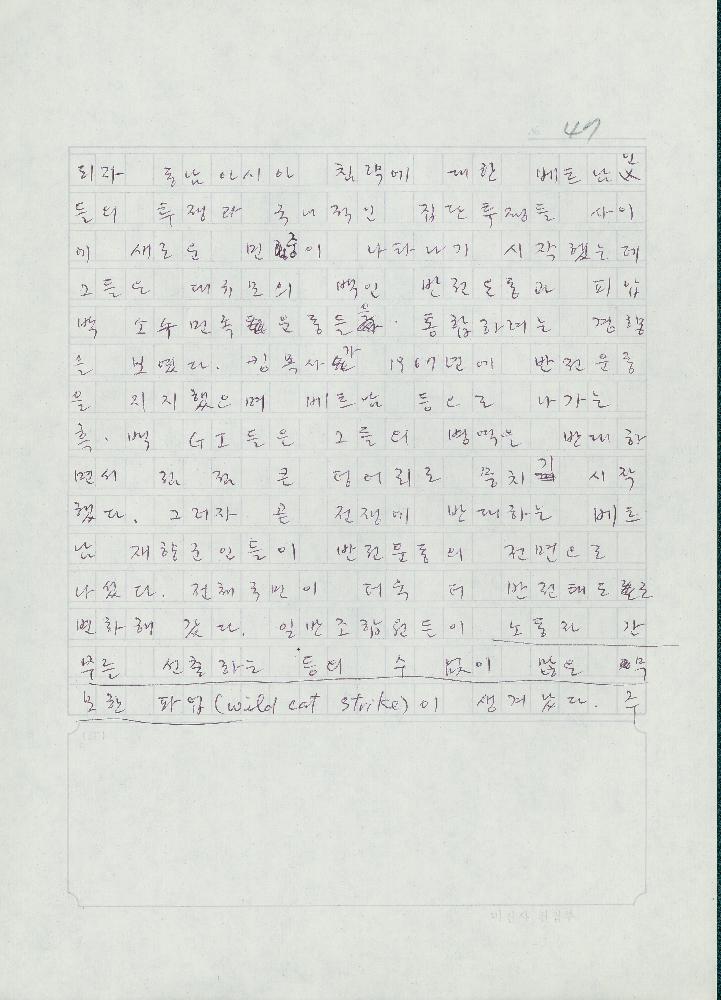 47
되자 동남아시아 침략에 대한 베트남인
들의 투쟁과 국내적인 집단투쟁들 사이
에 새로운 민중이 나타나기 시작했는데
그들은 대규모의 백인 반전운동과 피압
박 소수민족 운동들을 통합하려는 경향
을 보였다. 킹목사가 1967년에 반전운동
을 지지했으며 베트남 등으로 나가는
흑·백 GI들은 그들의 병역을 반대하
면서 점점 큰 덩어리로 뭉치기 시작
했다. 그러자 곧 전쟁에 반대하는 베트
남 재향군인들이 반전운동의 전면으로
나섰다. 전체국민이 더욱 더 반전태도로
변화해 갔다. 일반조합원들이 노동자 간
부를 선출하는 등의 수 없이 많은 무
모한 파업(wild cat strike)이 생겨났다. 주